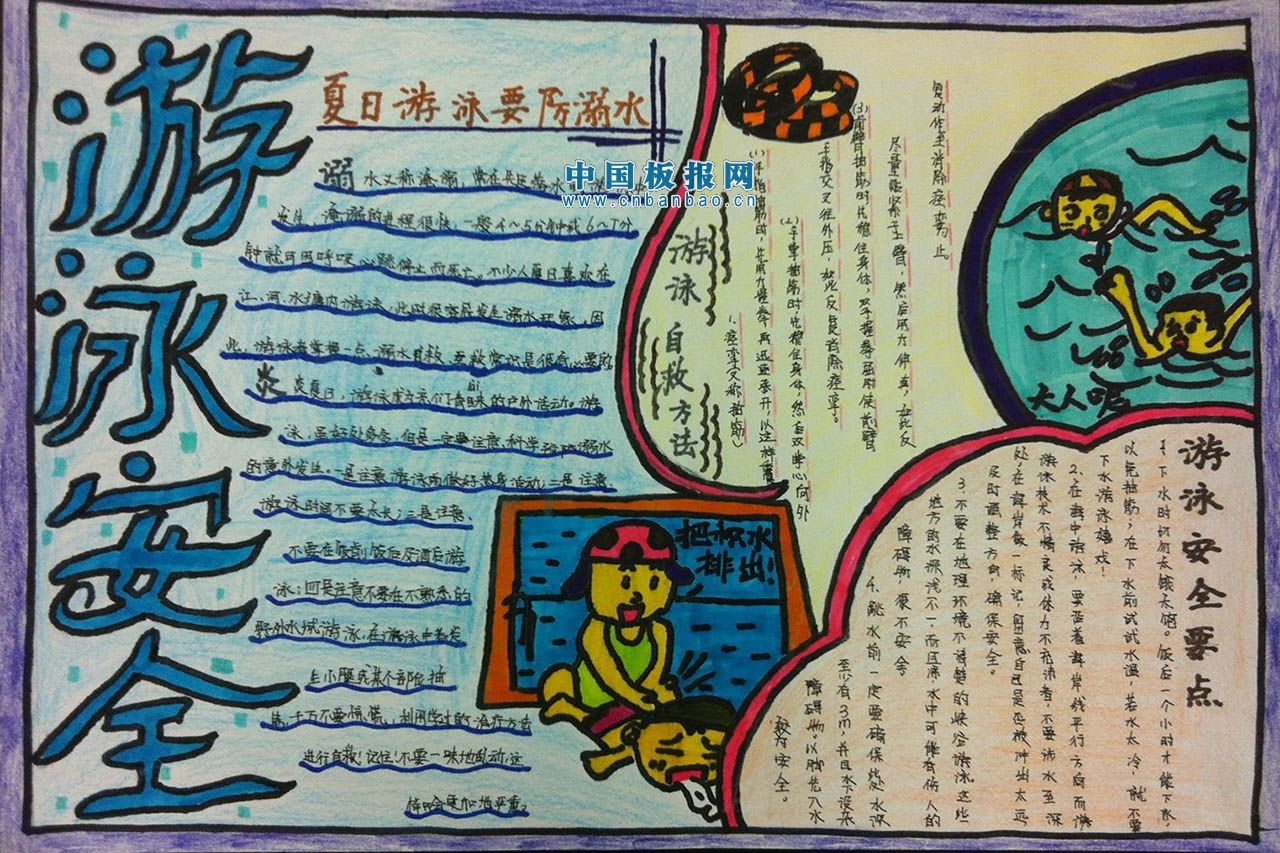 游泳安全
夏日游泳要防溺水
中国板报网
www.cnbanbao.cn
溺水又称淹溺,常在
发生,淹溺的进程很快,一般4~5分钟或6~7分
钟就可因呼吸心跳停止而死亡。不少人夏日喜欢在
江、河、水塘内游泳,此时很容易发生溺水现象,因
此,游泳者掌握一点溺水自救、互救常识是很有必要的
炎炎夏日,游泳成为人们青睐的户外活动。游
泳,虽好处多多,但是一定要注意科学预防溺水
的意外发生。一是注意游泳前做好热身活动;二是注意
游泳时间不要太长;三是注意
不要在饭前饭后及酒后游
泳;四是注意不要在不熟悉的
野外水域游泳,在游泳中若发
生小腿或某个部位抽
筋,千万不要惊慌,利用学过的治疗方法
进行自救!记住!不要一味地乱动,这
样只会更加括严重。
游泳自救方法
1.痉挛又称抽筋)
(1)手指抽筋时,先用力握拳,再迅速张开,以这样
(2)手掌抽筋时,先稳住身体,然后双掌心向外
手指交叉往外压,如此反复消除痉挛。
(3)前臂抽筋时,先稳住身体,双手握拳屈肘使前臂
尽量贴紧于上臂,然后用力伸直,如此反
复动作至消除痉挛为止。
大人呢
把积水
排出!
游泳安全要点
1.下水时切勿太饿太饱。饭后一个小时才能下水,
以免抽筋;在下水前试试水温,若水太冷,就不要
下水游泳嬉戏!
2.在海中游泳,要沿着海岸线平行方向而游
游泳技术不精良或体力不充沛者,不要涉水至深
处,在海岸做一标记,留意自己是否被冲出太远
及时调整方向,确保安全。
3.不要在地理环境不清楚的峡谷游泳这些
地方的水深浅不一而且冰水中可能有伤人的
障碍物很不安全
4.跳水前一定要确保此处水深
至少有3m,并且水下没杂
障碍物,以脚先入水
较为安全。